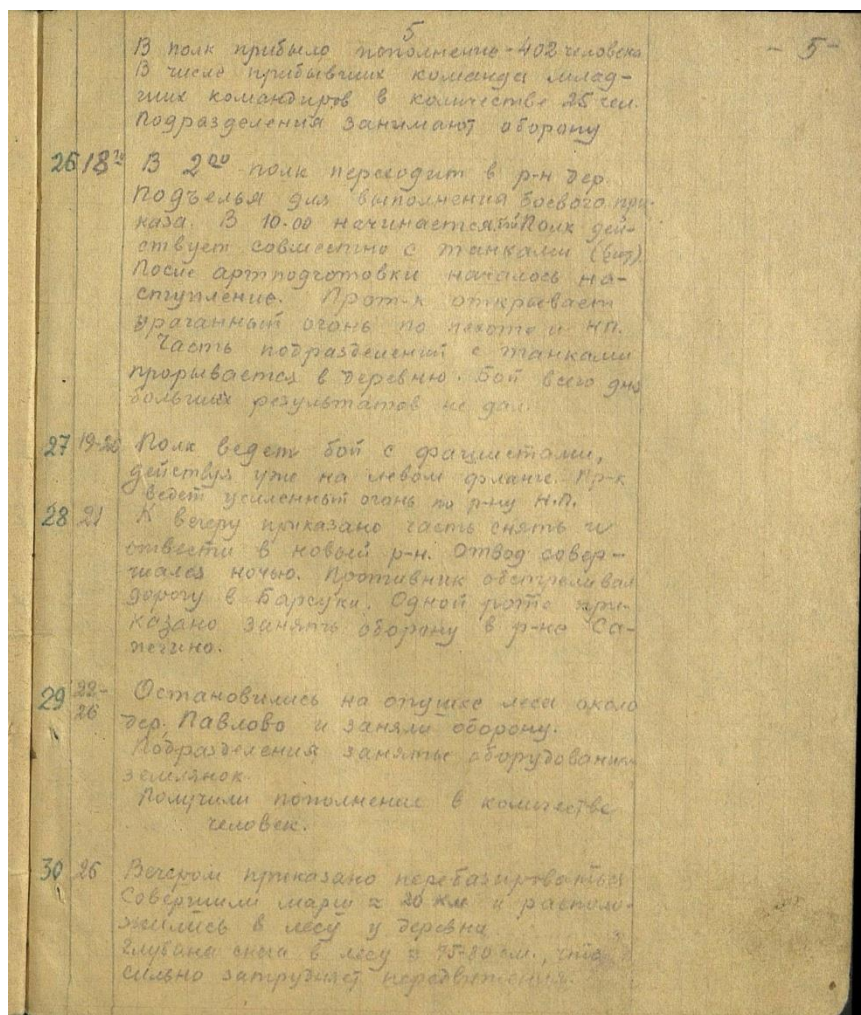 5
- 5 -
В полк прибыло пополнение - 402 человека
В числе прибывших команда млад-
ших командиров в количестве 25 чел.
Подразделения занимают оборону
26 18 В 2 00 полк переходит в р-н дер.
Подъелья для выполнения боевого при-
каза. В 10.00 начинается Полк дей-
ствует совместно с танками
После артподготовки началось на-
ступление. Прот-к открывает
ураганный огонь по пехоте и НП.
Часть подразделений с танками
прорывается в деревню. Бой всего дня
больших результатов не дал.
27 19-20 Полк ведет бой с фашистами,
действуя уже на левом фланге. Пр-к
ведет усиленный огонь по р-ну Н.П.
28 21 К вечеру приказано часть снять и
отвести в новый р-н. Отвод совер-
шался ночью. Противник обстреливал
дорогу в Барсуки. Одной роте при-
казано занять оборону в р-не Са-
29 22-26 Остановились на опушке леса около
дер. Павлово и заняли оборону.
Подразделения заняты оборудованием
землянок.
Получили пополнение в количестве
человек.
30 26 Вечером приказано перебазироваться
Совершили марш ≈ 20 км и располо-
жились в лесу у деревни
Глубина снега в лесу ≈ 75-80 см., что
сильно затрудняет передвижения.